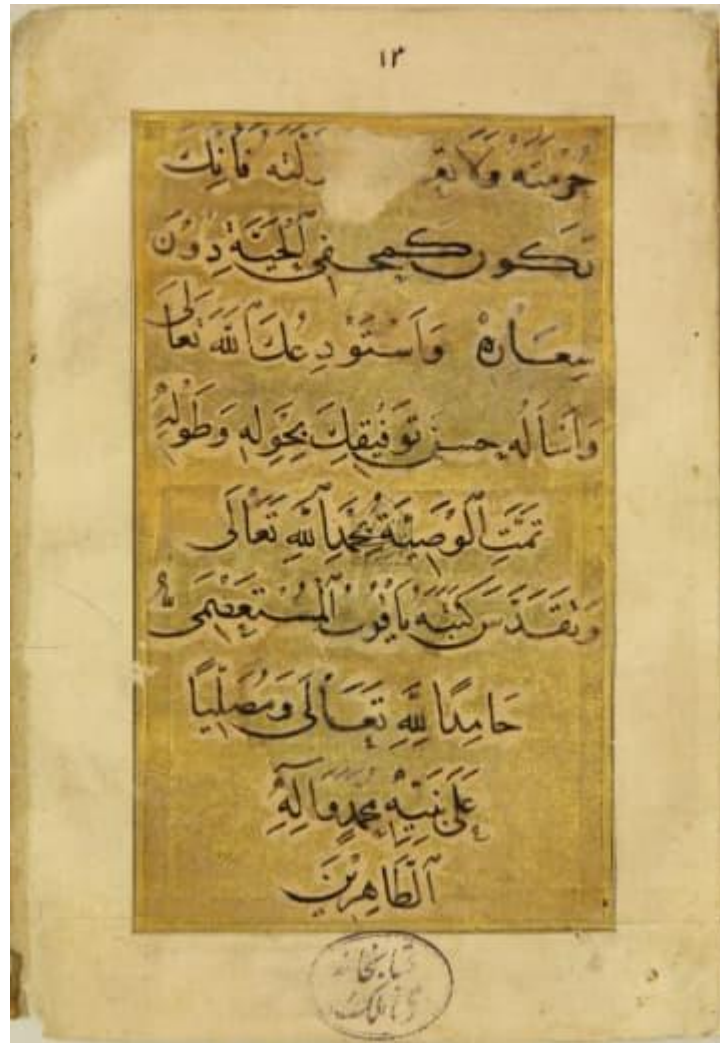 ١٣
حُرْمَتَهُ وَلَا لَتَهُ فَأَنْتَ
تَكُون فِي الْجَنَّةِ دُونَ
وَاَسْتَوْدِعُكَ اللّٰهَ تَعَالَى
وَاَسْأَلُهُ حُسْنَ تَوْفِيقِكَ بِحَوْلِهِ وَطَوْلِهِ
تَمَّتِ الْوَصِيَّةُ بِحَمْدِ اللّٰهِ تَعَالَى
وَتَقَدَّسَ كَتَبَهُ يَاقُوتُ الْمُسْتَعْصِمِي
حَامِدًا لِلّٰهِ تَعَالَى وَمُصَلِّيًا
عَلَى نَبِيِّهِ مُحَمَّدٍ وَآلِهِ
الطَّاهِرِينَ
كتابخانه
ملک